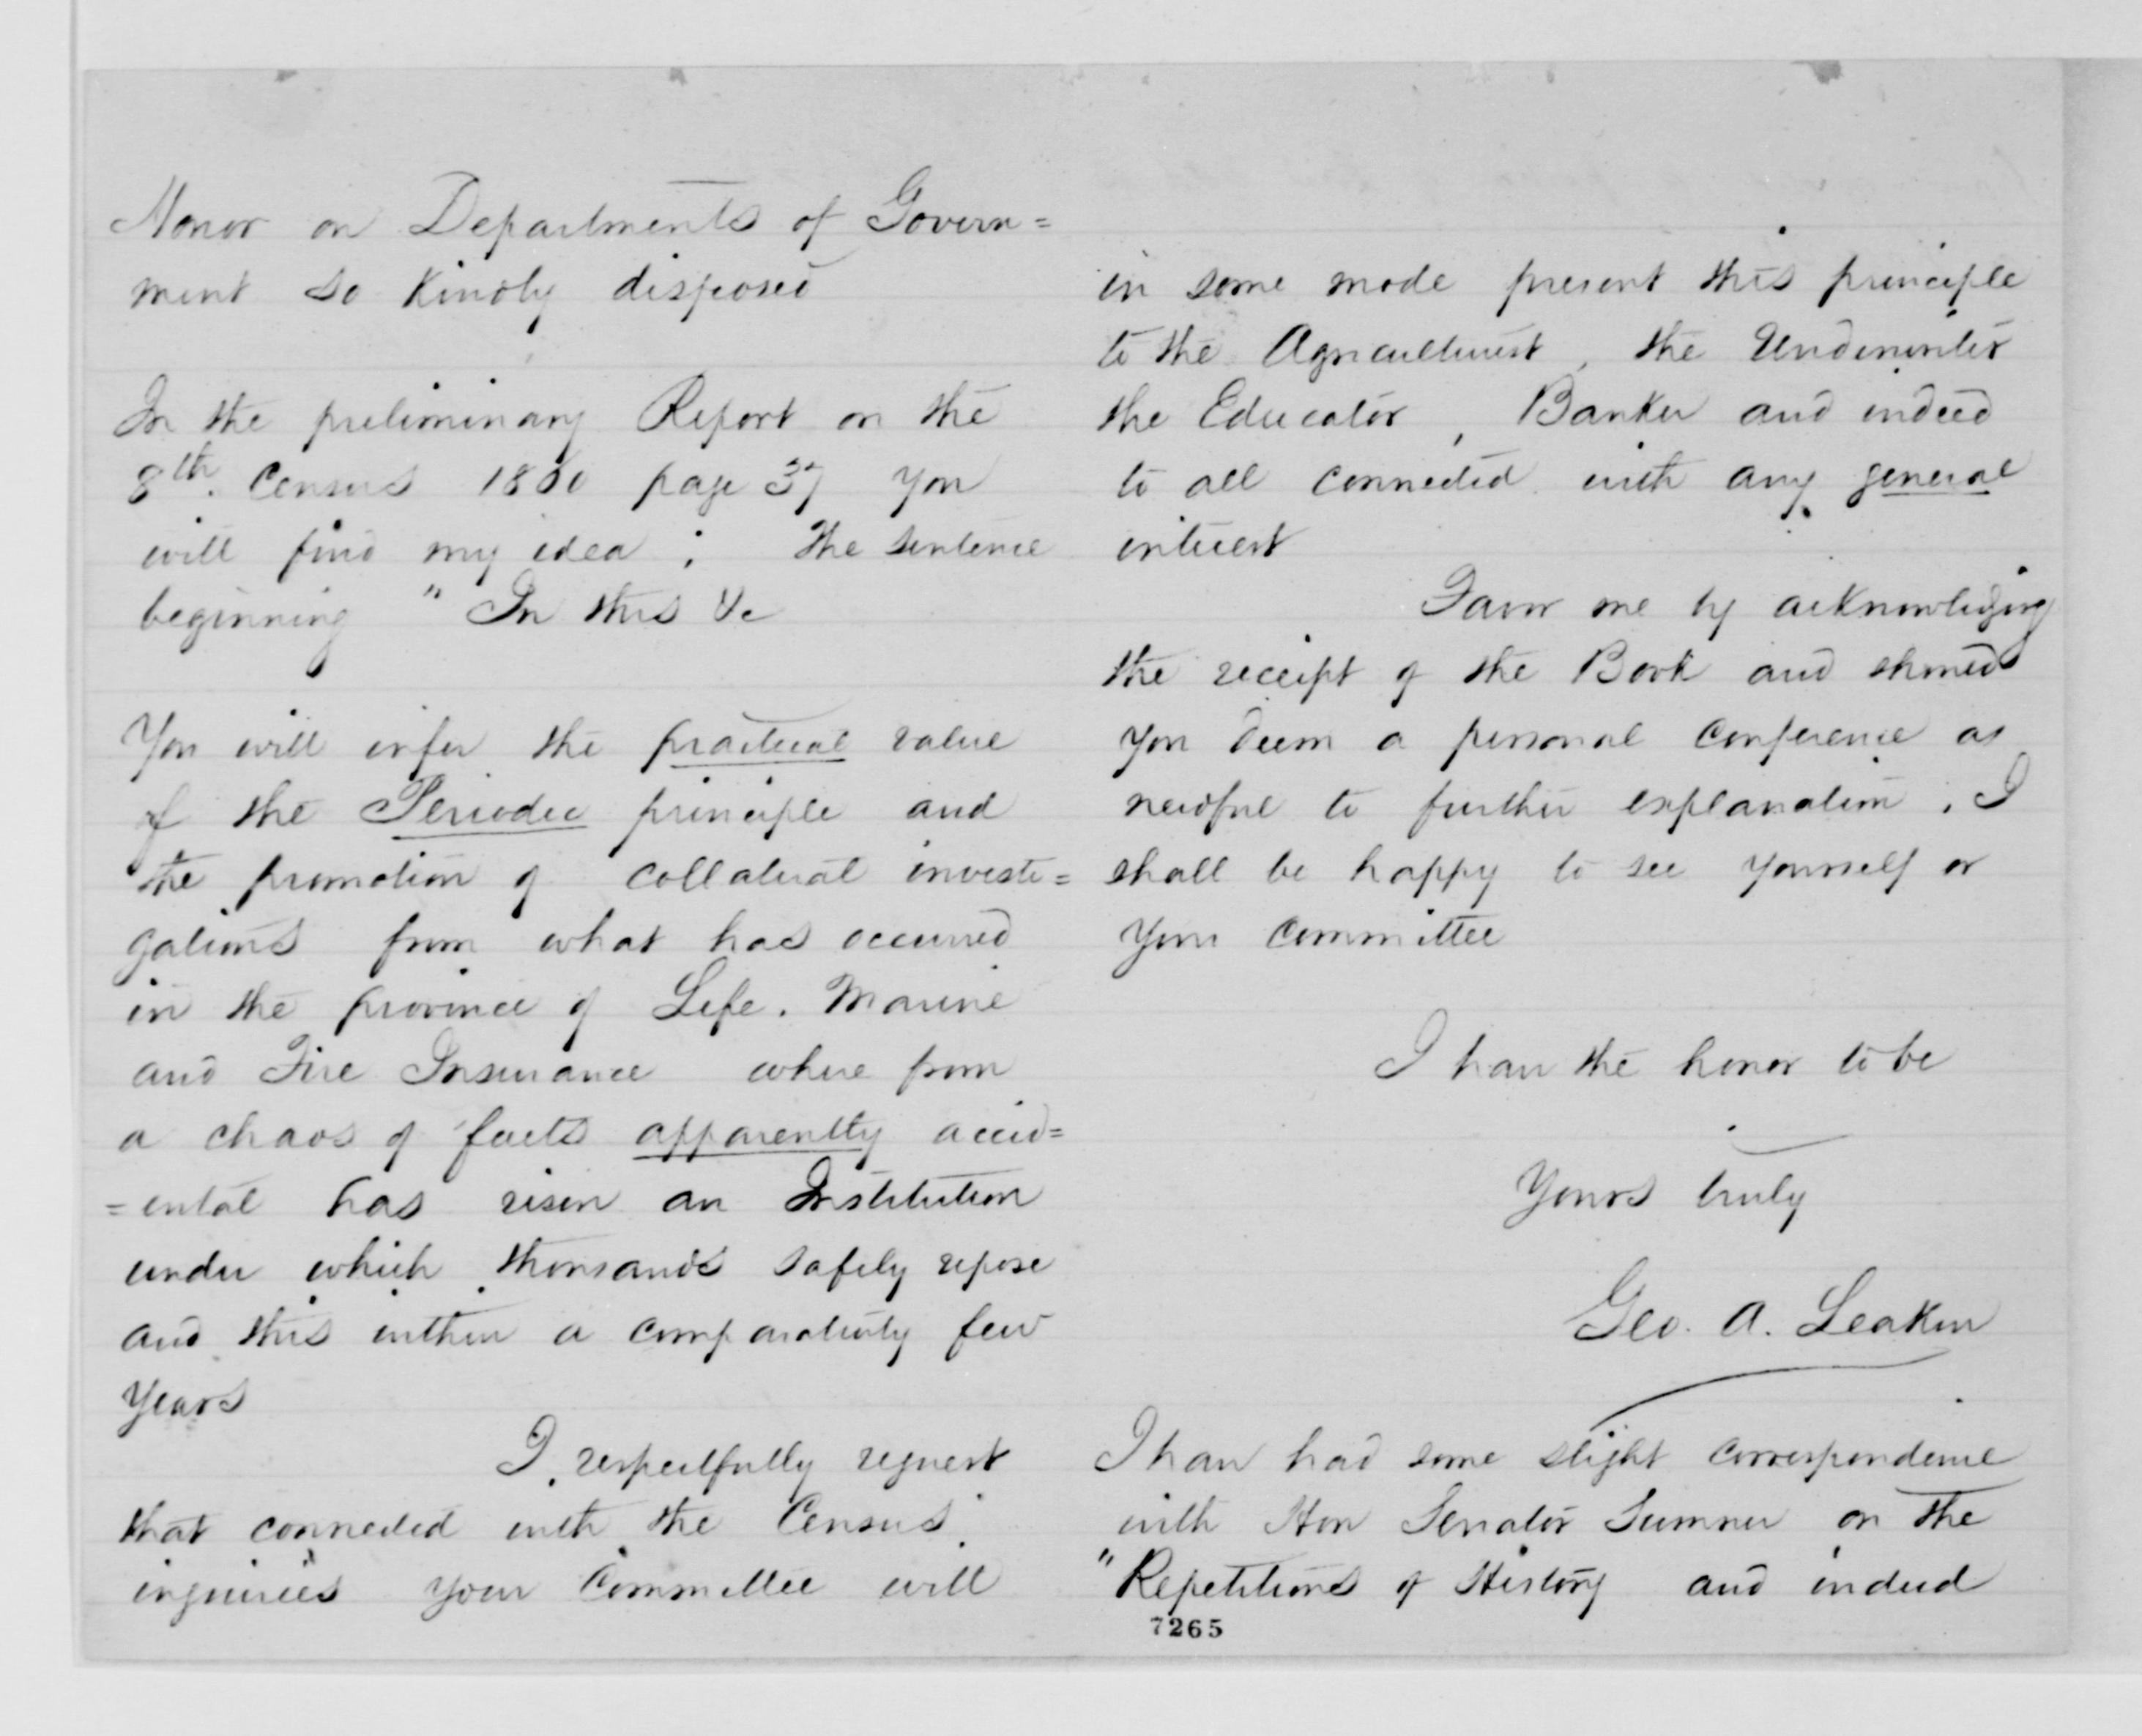 Honor on Departments of Govern=
ment so kindly disposed
In the preliminary Report on the
8th. Census 1860 page 37 you
will find my idea ; the sentence
beginning " In this &c
You will infer the practical value
of the Periodic principle and
the promotion of collateral investi=
gations from what has occurred
in the province of Life. Marine
and Fire Insurance where from
a chaos of facts apparently accid=
=ental has risen an Institution
under which thousands safely repose
and this within a comparatively few
years
I respectfully request
that connected with the Census
inquiries your Committee will
in some mode present this principle
to the Agriculturist, the Underwriter
the Educator, Banker and indeed
to all connected with any general
interest
Favor me by acknowledging
the receipt of the Book and should
you deem a personal conference as
needful to further explanation, I
shall be happy to see yourself or
your Committee
I have the honor to be
Yours truly
Geo. A. Leakin
I have had some slight correspondence
with Hon Senator Sumner on the
"Repetitions of History and indeed
7265